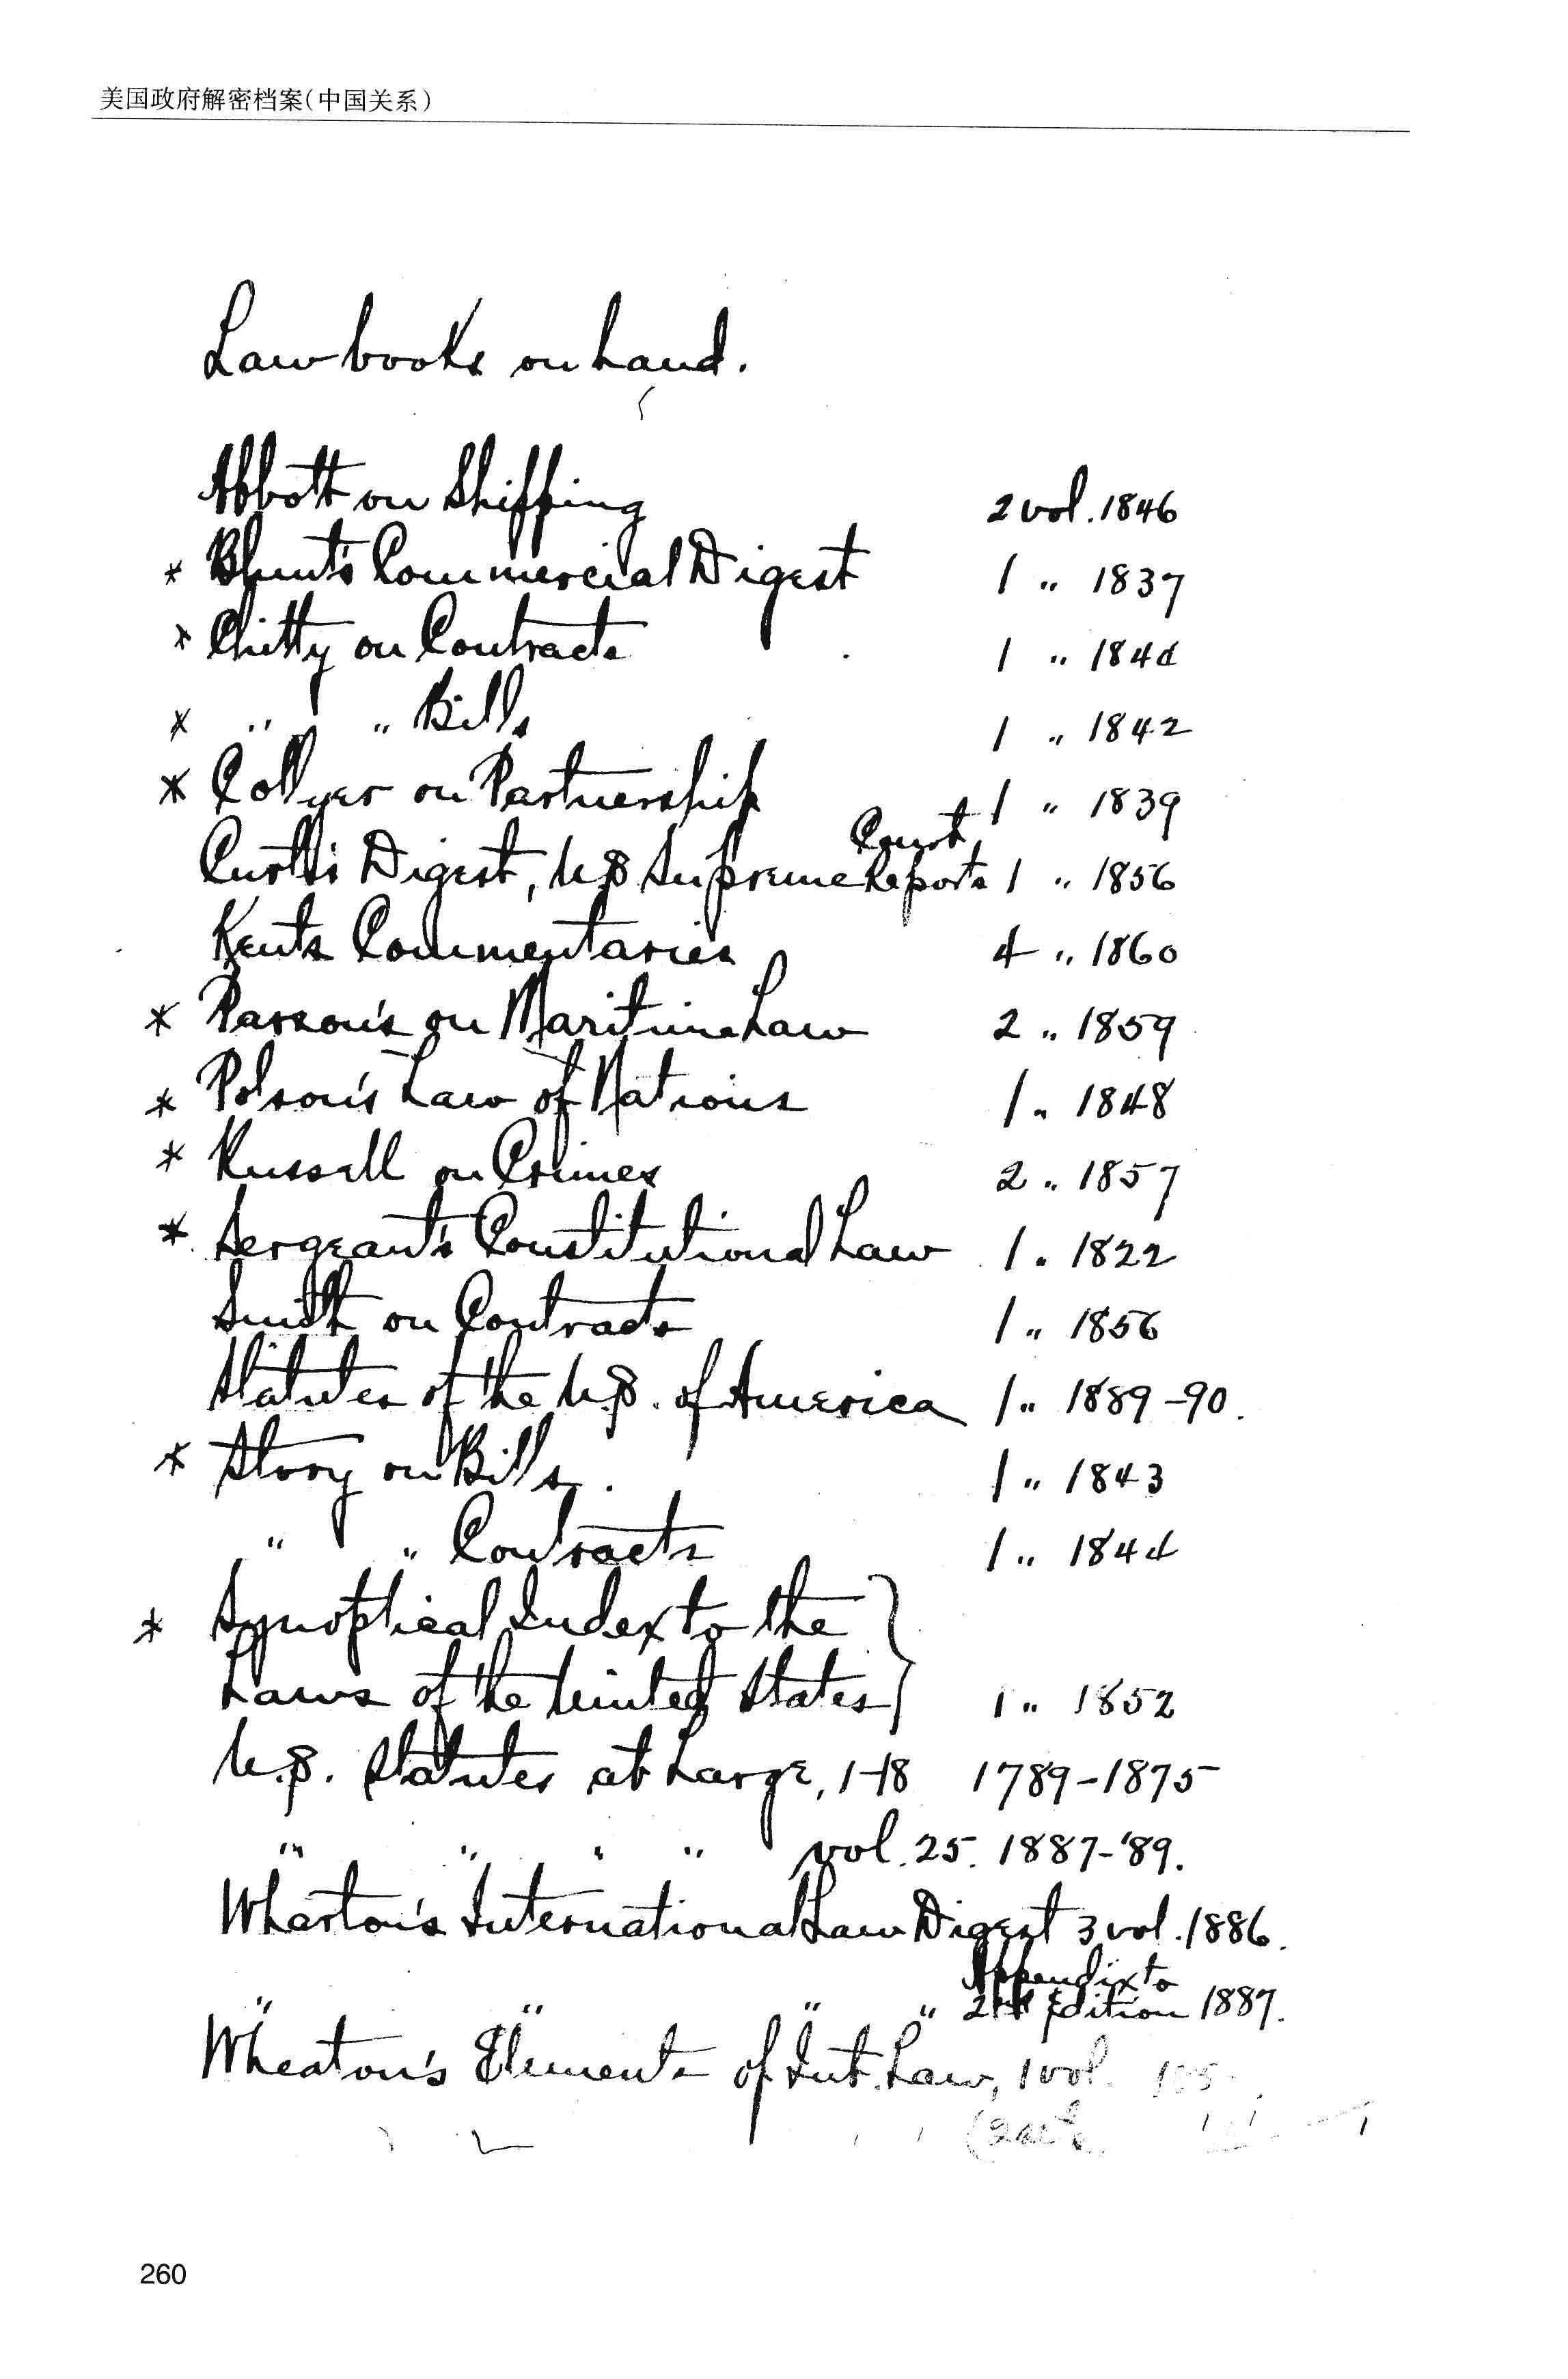 美国政府解密档案(中国关系)
Law books on hand.
Abbott on Shipping 2 vol. 1846
* Blunt's Commercial Digest 1 " 1837
* Chitty on Contracts 1 " 1844
* " " Bills 1 " 1842
* Collyer on Partnership 1 " 1839
Curtis's Digest, U.S. Supreme Court Reports 1 " 1856
Kent's Commentaries 4 " 1860
* Parson's on Maritime Law 2 " 1859
* Polson's Law of Nations 1 " 1848
* Russell on Crimes 2 " 1857
* Sergeant's Constitutional Law 1 " 1822
Smith on Contracts 1 " 1856
Statutes of the U.S. of America 1 " 1889-90.
* Story on Bills. 1 " 1843
" " Contracts 1 " 1844
* Synoptical Index to the
Laws of the United States } 1 " 1852
U.S. Statutes at Large, 1-18 1789-1875
" " " " vol. 25. 1887-'89.
Wharton's International Law Digest 3 vol. 1886.
Appendix to
" " " " 2nd Edition 1887.
Wheaton's Elements of Int. Law, 1 vol.
260